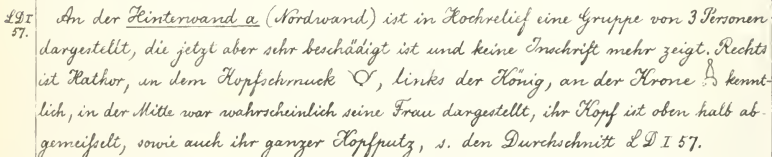 LDI An der Hinterwand a (Nordwand) ist in Hochrelief eine Gruppe von 3 Personen
57. dargestellt, die jetzt aber sehr beschädigt ist und keine Inschrift mehr zeigt. Rechts
ist Hathor, an dem Kopfschmuck , links der König, an der Krone kennt-
lich, in der Mitte war wahrscheinlich seine Frau dargestellt, ihr Kopf ist oben halb ab-
gemeißelt, sowie auch ihr ganzer Kopfputz, s. den Durchschnitt LD I 57.